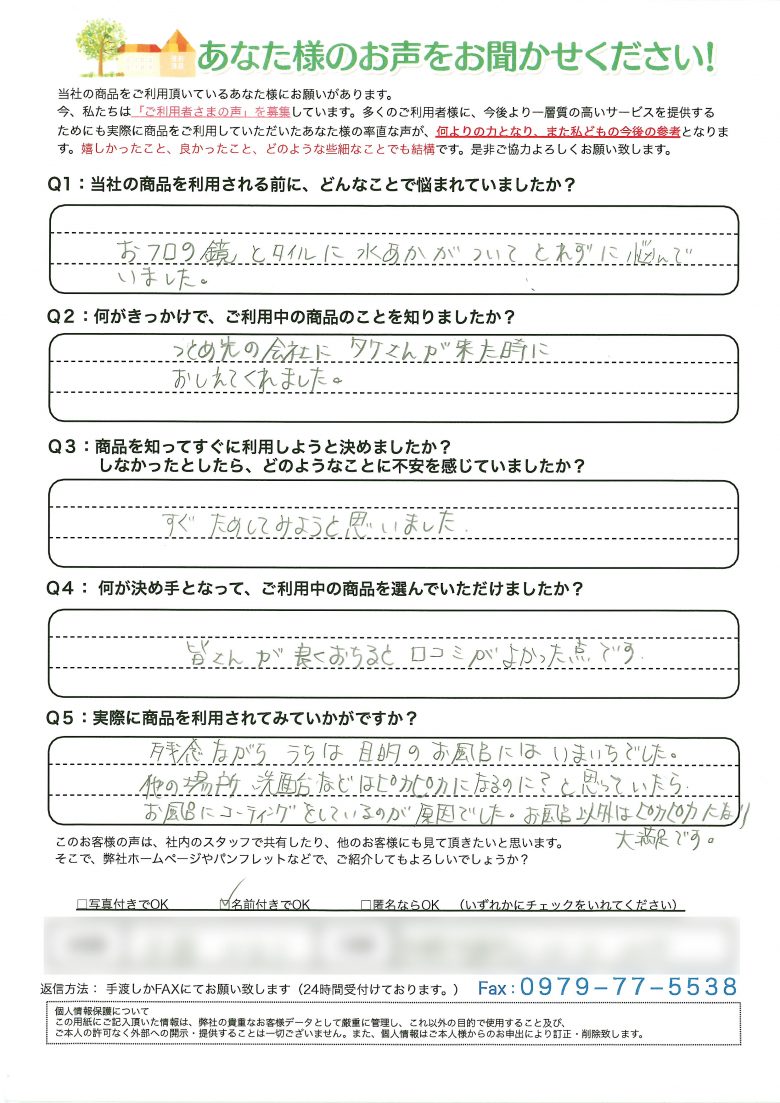 あなた様のお声をお聞かせください!
当社の商品をご利用頂いているあなた様にお願いがあります。
今、私たちは「ご利用者さまの声」を募集しています。多くのご利用者様に、今後より一層質の高いサービスを提供する
ためにも実際に商品をご利用していただいたあなた様の率直な声が、何よりの力となり、また私どもの今後の参考となりま
す。嬉しかったこと、良かったこと、どのような些細なことでも結構です。是非ご協力よろしくお願い致します。
Q1：当社の商品を利用される前に、どんなことで悩まれていましたか？
おフロの鏡とタイルに水あかがついてとれずに悩んで
いました。
Q2：何がきっかけで、ご利用中の商品のことを知りましたか？
つとめ先の会社にタケさんが来た時に
おしえてくれました。
Q3：商品を知ってすぐに利用しようと決めましたか？
しなかったとしたら、どのようなことに不安を感じていましたか？
すぐためしてみようと思いました.
Q4： 何が決め手となって、ご利用中の商品を選んでいただけましたか？
皆さんが良くおちると口コミがよかった点です.
Q5：実際に商品を利用されてみていかがですか？
残念ながらうちは目的のお風呂にはいまいちでした。
他の場所 洗面台などはピカピカになるのに？と思っていたら.
お風呂にコーティングをしているのが原因でした。お風呂以外はピカピカになり
大満足です。
このお客様の声は、社内のスタッフで共有したり、他のお客様にも見て頂きたいと思います。
そこで、弊社ホームページやパンフレットなどで、ご紹介してもよろしいでしょうか？
□写真付きでOK ☑名前付きでOK □匿名ならOK （いずれかにチェックをいれてください）
返信方法： 手渡しかFAXにてお願い致します（24時間受付けております。） Fax：0979-77-5538
個人情報保護について
この用紙にご記入頂いた情報は、弊社の貴重なお客様データとして厳重に管理し、これ以外の目的で使用すること及び、
ご本人の許可なく外部への開示・提供することは一切ございません。また、個人情報はご本人様からのお申出により訂正・削除致します。